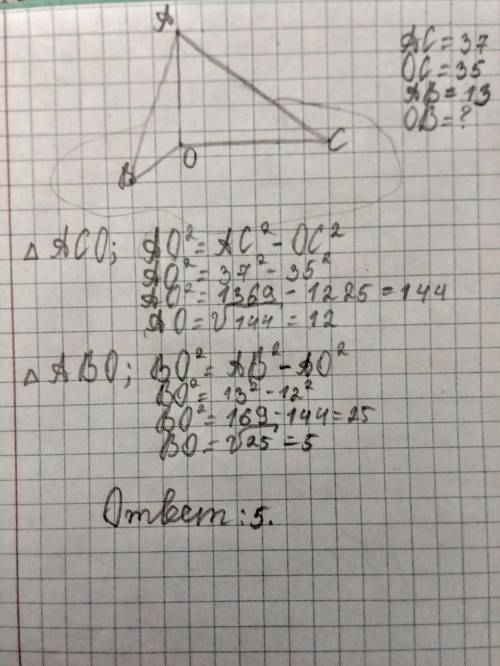 A
B
O
C
AC = 37
OC = 35
AB = 13
OB = ?
△ ACO; AO² = AC² - OC²
AO² = 37² - 35²
AO² = 1369 - 1225 = 144
AO = √144 = 12
△ ABO; BO² = AB² - AO²
BO² = 13² - 12²
BO² = 169 - 144 = 25
BO = √25 = 5
Ответ: 5.